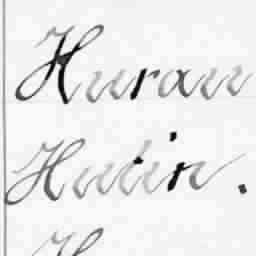 Hurau
Hutin.